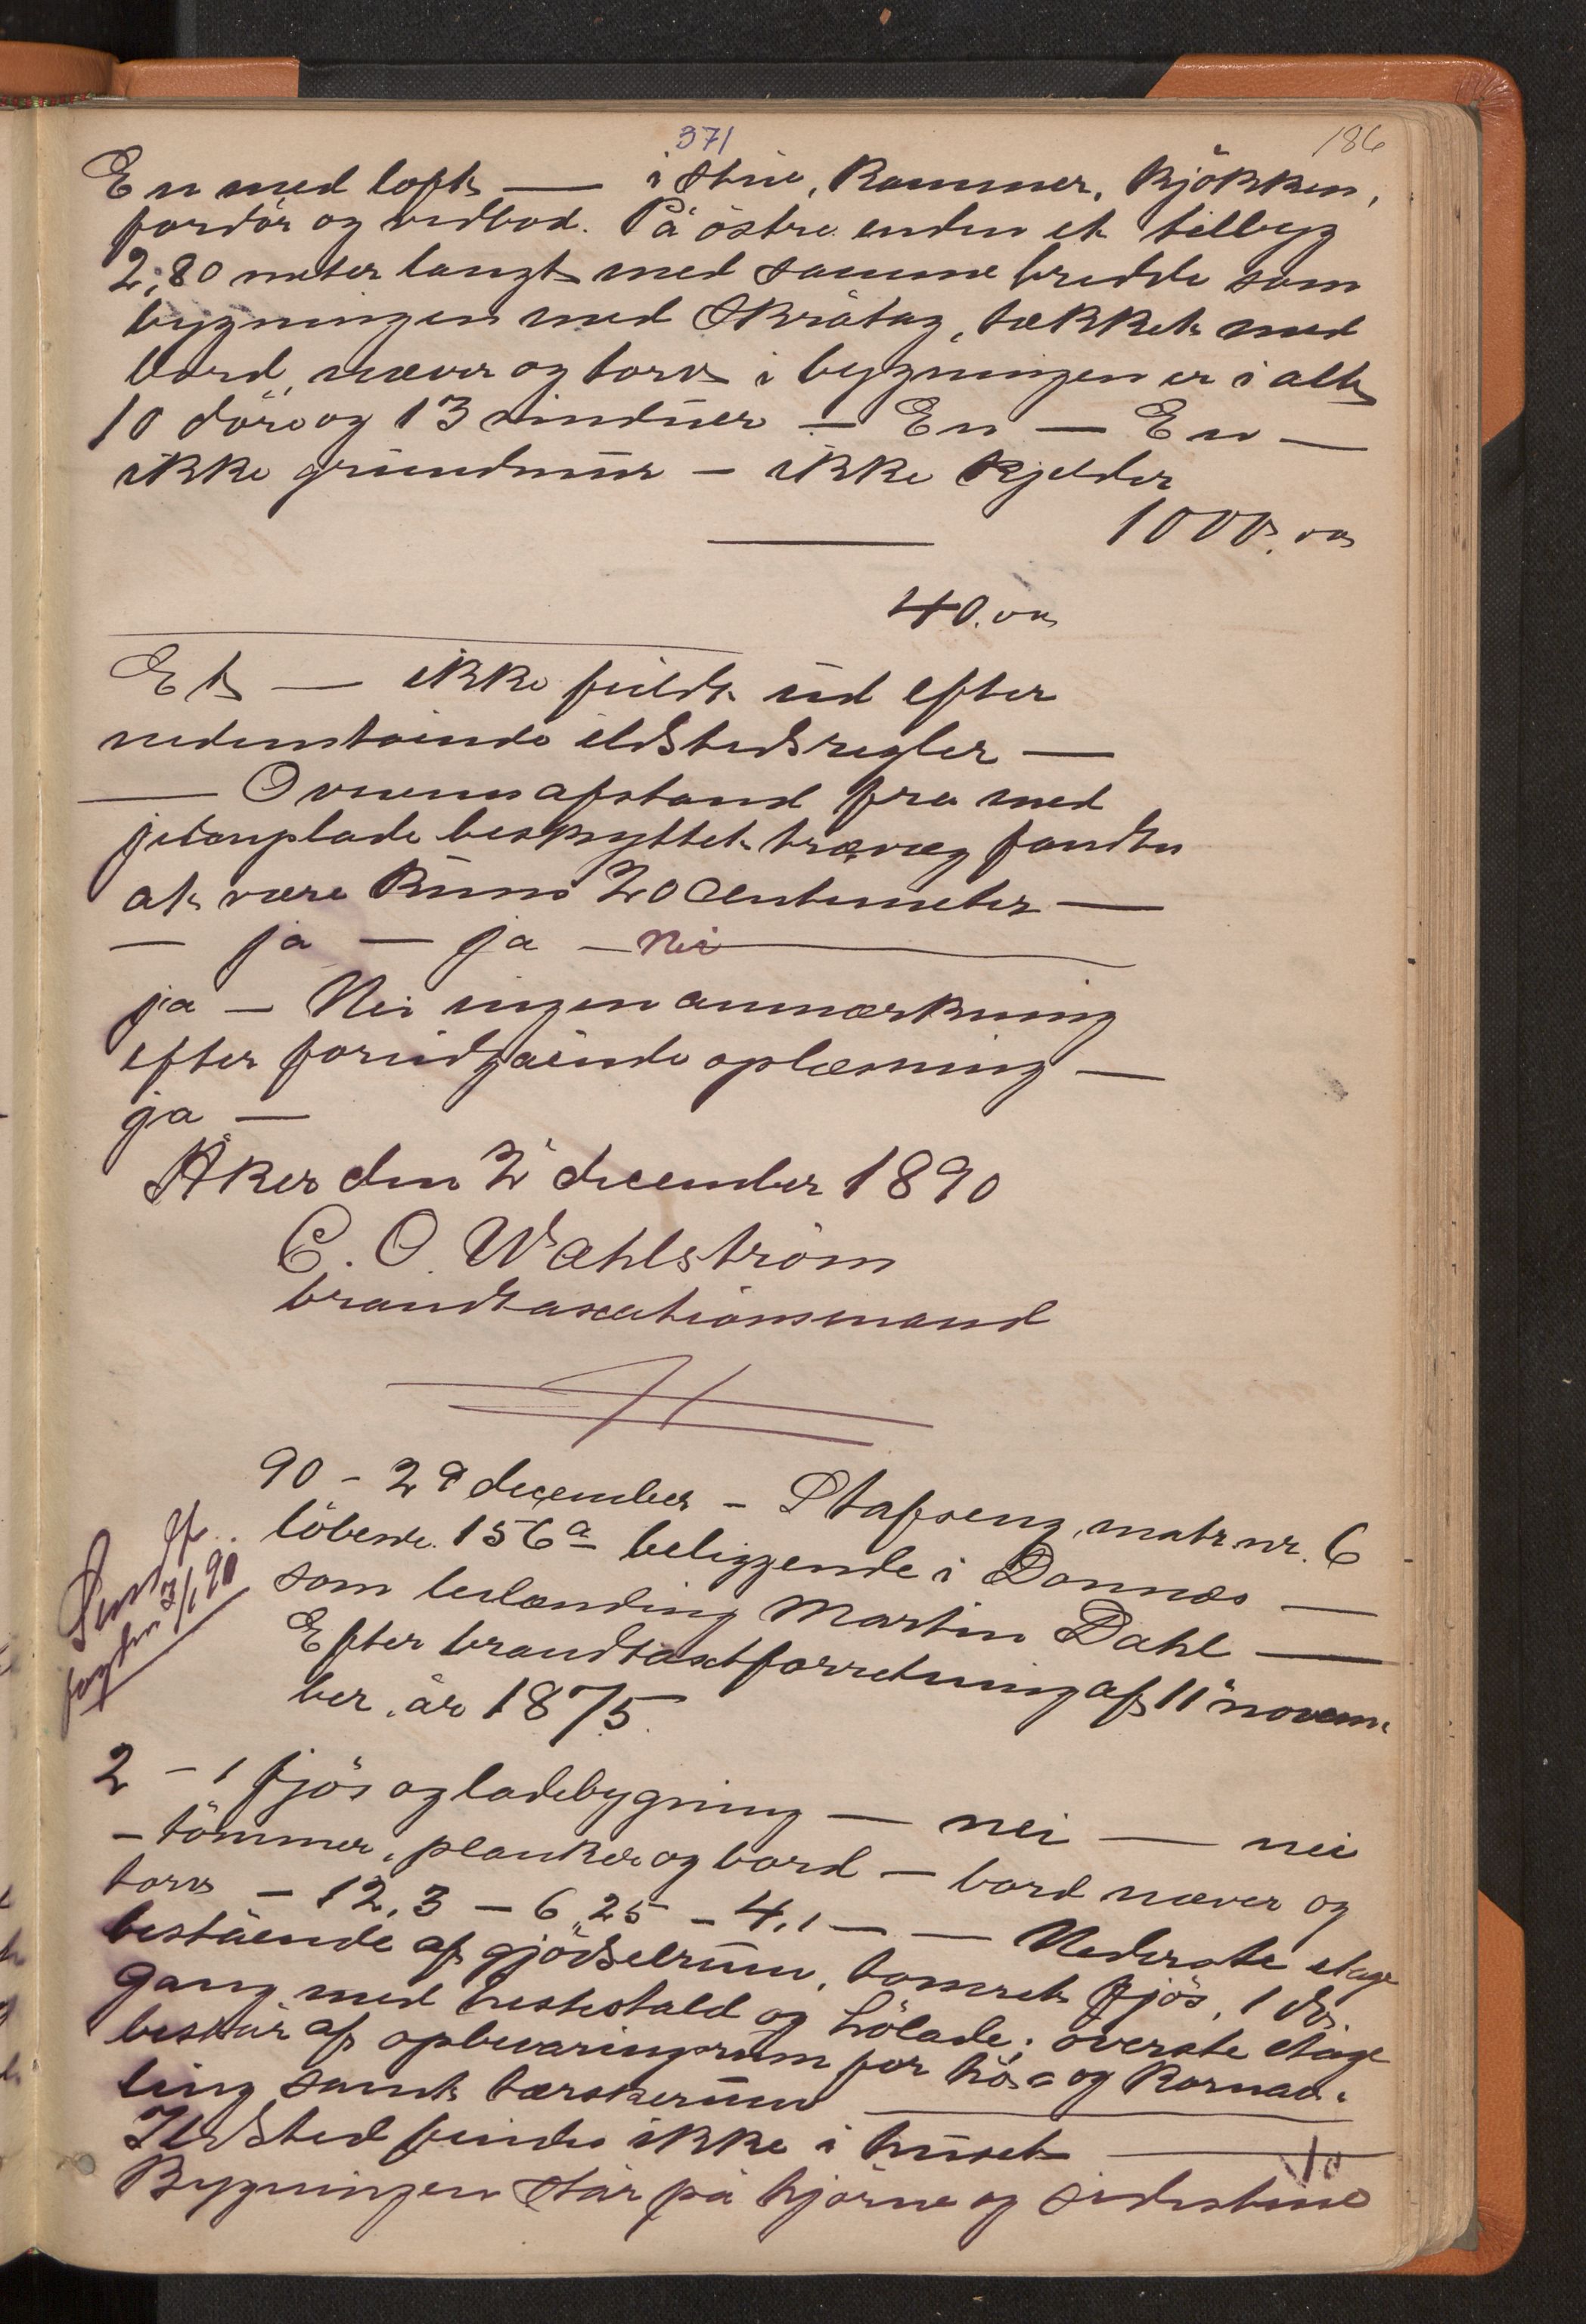 371
186
En med loft — 1 stue, kammer, kjökken,
fordör og vedbod. På östre enden et tilbyg
2,80 meter langt med samme bredde som
bygningen med skråtag, tækket med
bord, næver og torv i bygningen er i alt
10 döre og 13 vinduer — En — En —
ikke grundmur — ikke kjelder
1000.oo
40.oo
Et — ikke fuldt ud efter
nedenstående ildstedsregler —
— Ovnenes afstand fra med
jernplade beskyttet trævæg fandtes
at være kuns 20 Centimeter —
— ja — ja — Nei —
ja — Nei ingen anmærkning
efter forudgående oplæsning —
ja —
Åker den 2 december 1890
C. O. Wahlström
brandtaxationsmand
90 - 2 december - Stafseng, matr. nr. 6
löbende. 156a beliggende i Dønnes —
som leilænding Martin Dahl —
Efter brandtaxtforretning af 11 novem-
ber år 1875.
Sendt
fogden
2 - 1 fjös og ladebygning — nei — nei
- tömmer, planker og bord — bord næver og
torv - 12,3 - 6,25 - 4,1 — — Nederste etage
bestående af gjödselrum, tomret fjös, 1 dör
gang med hestestald og hölade; överste etage
består af opbevaringsrum for hö og kornav-
ling samt tærskerum —
Ildsted findes ikke i huset —
Bygningen står på hjörne og sidestene